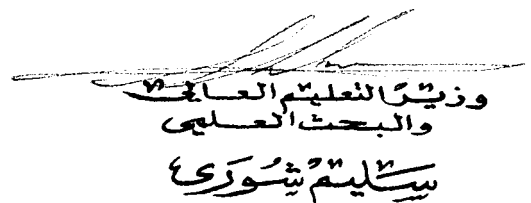 وزير التعليم العالي
والبحث العلمي
سليم شورى